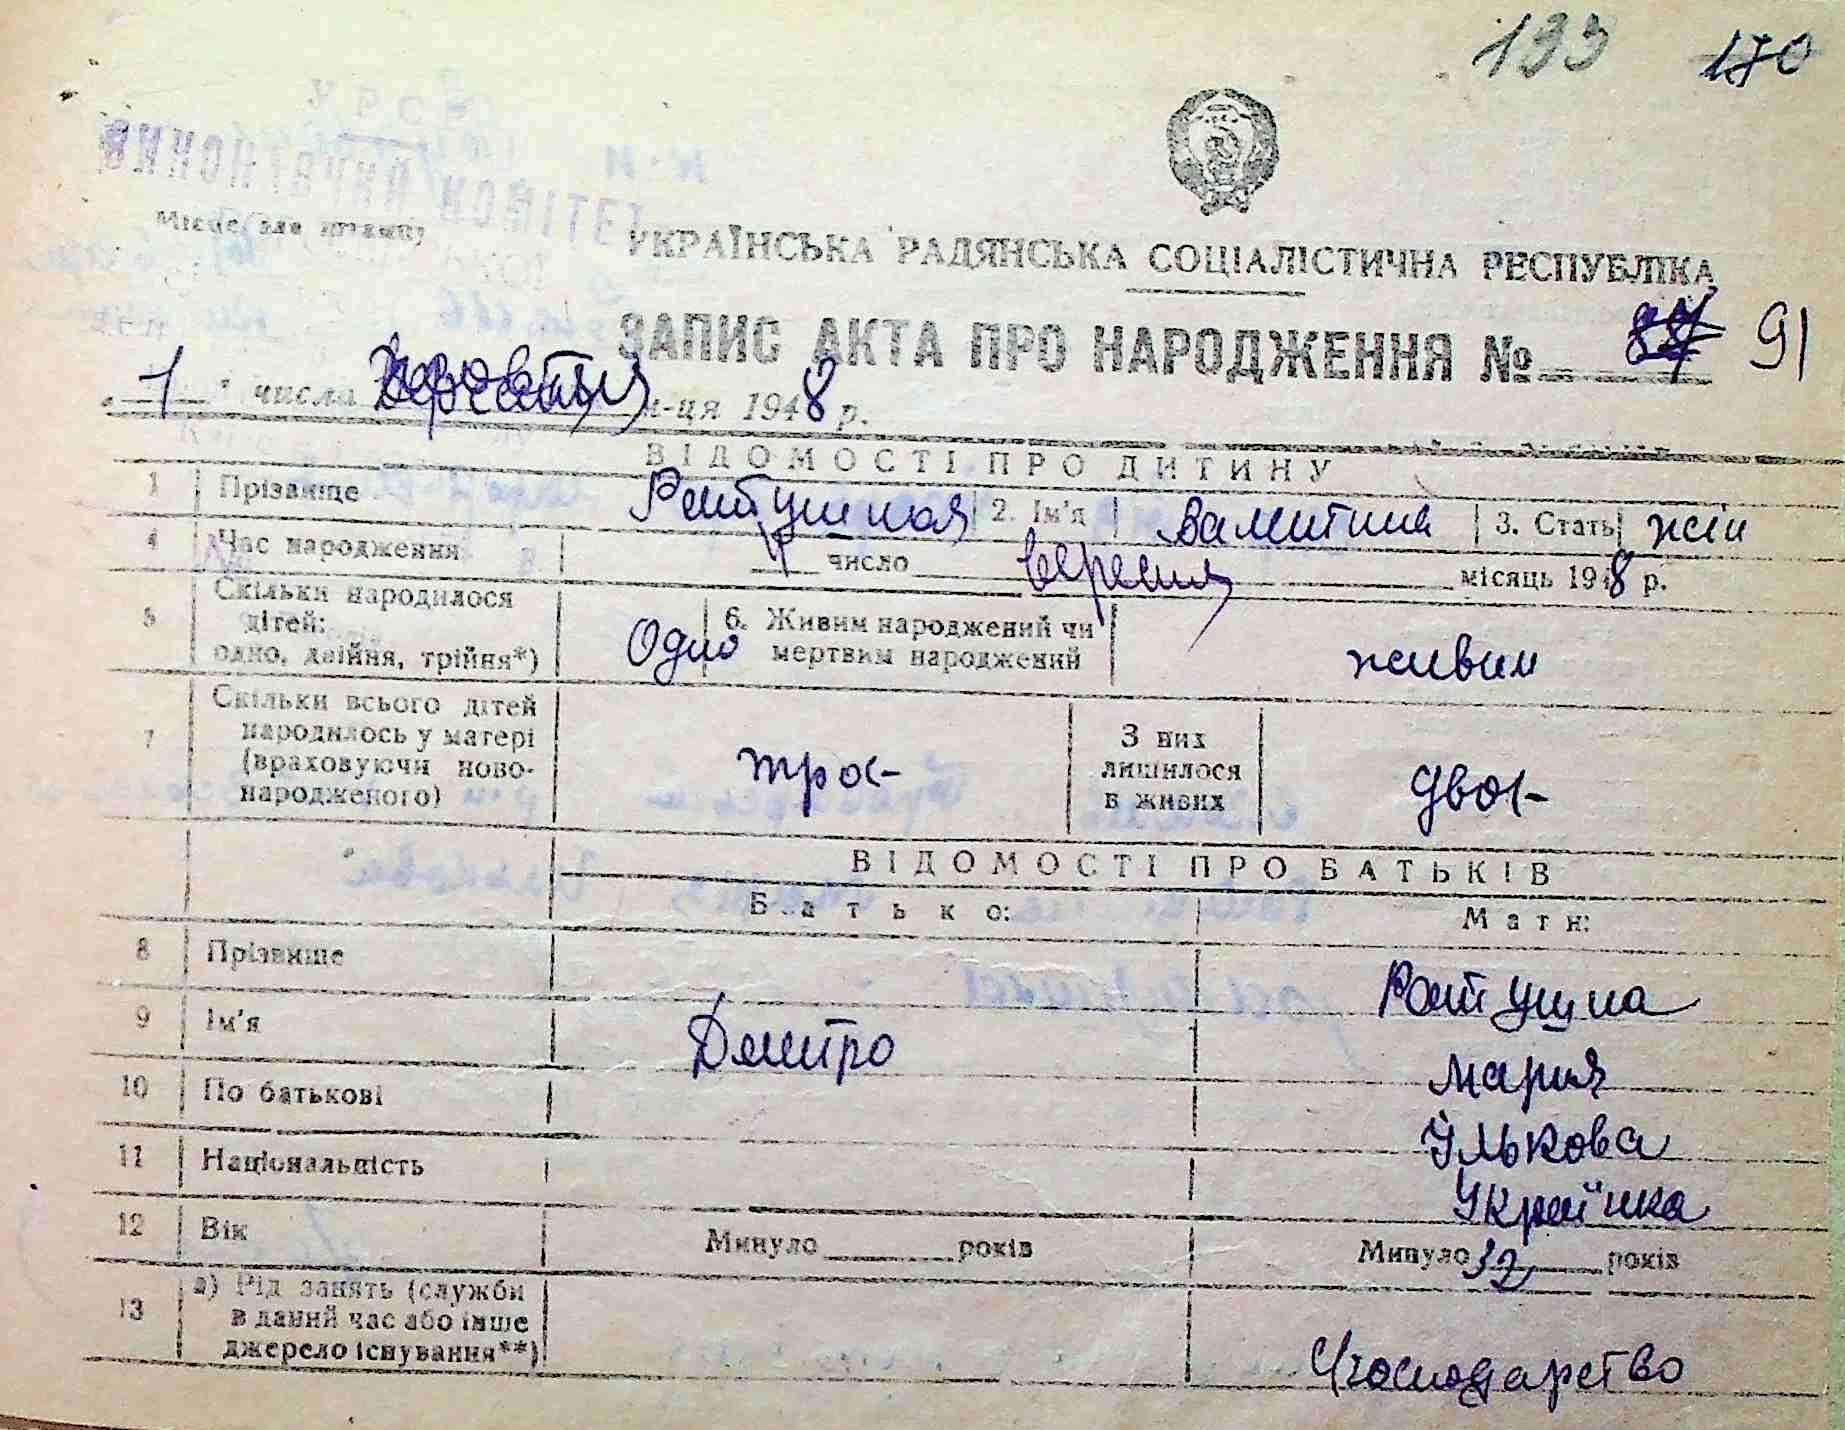 133 170
УРСР
ВИКОНАВЧИЙ КОМІТЕТ
Місце для штампу
УКРАЇНСЬКА РАДЯНСЬКА СОЦІАЛІСТИЧНА РЕСПУБЛІКА
ЗАПИС АКТА ПРО НАРОДЖЕННЯ № 91
„1" числа м-ця 1948 р.
ВІДОМОСТІ ПРО ДИТИНУ
1 Прізвище Ратушная 2. Ім'я Валентина 3. Стать жін
4 Час народження число вересня місяць 1948 р.
5 Скільки народилося дітей: одно, двійня, трійня*) Одно 6. Живим народжений чи мертвим народжений живим
7 Скільки всього дітей народилось у матері (враховуючи новонародженого) троє- З них лишилося в живих двоє-
ВІДОМОСТІ ПРО БАТЬКІВ
Батько: Мати:
8 Прізвище Ратушна
9 Ім'я Дмитро Мария
10 По батькові Ількова
11 Національність Українка
12 Вік Минуло років Минуло 32 років
13 а) Рід занять (служби в даний час або інше джерело існування**) Чгосподарство